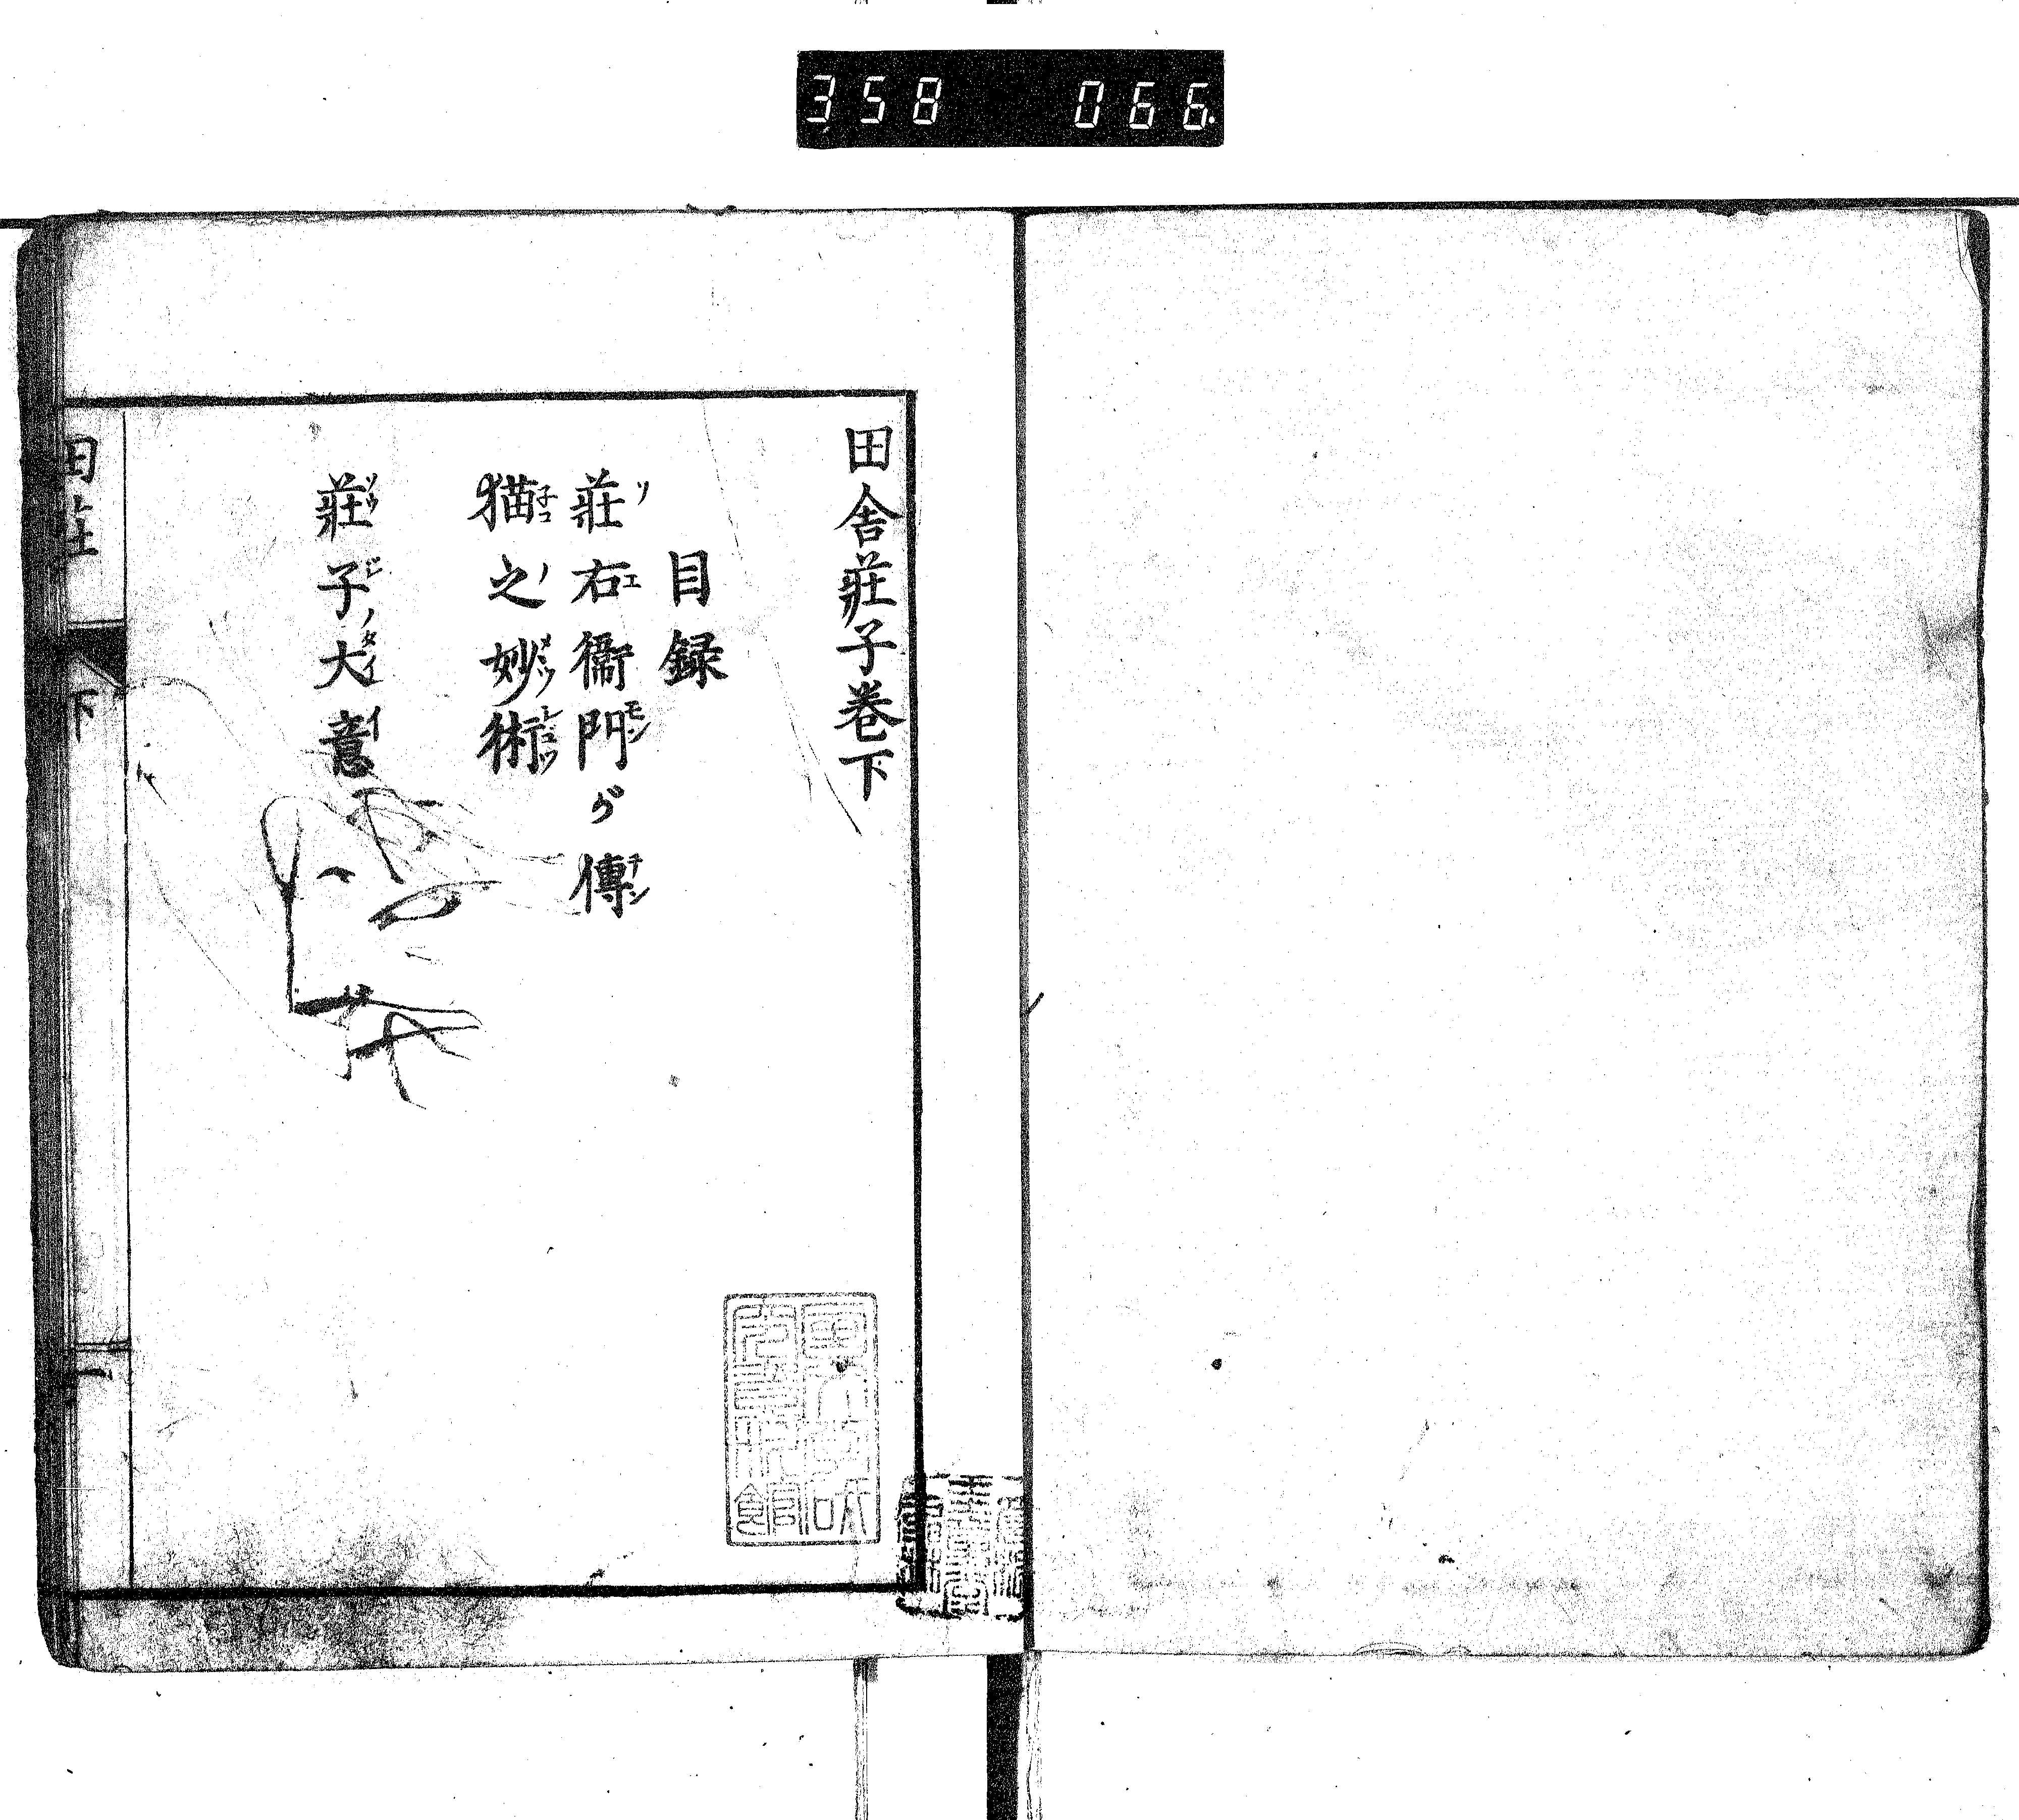 358 066
田舎莊子巻下
目録
莊右衞門が傳
猫之妙術
莊子大意
田莊 下 一